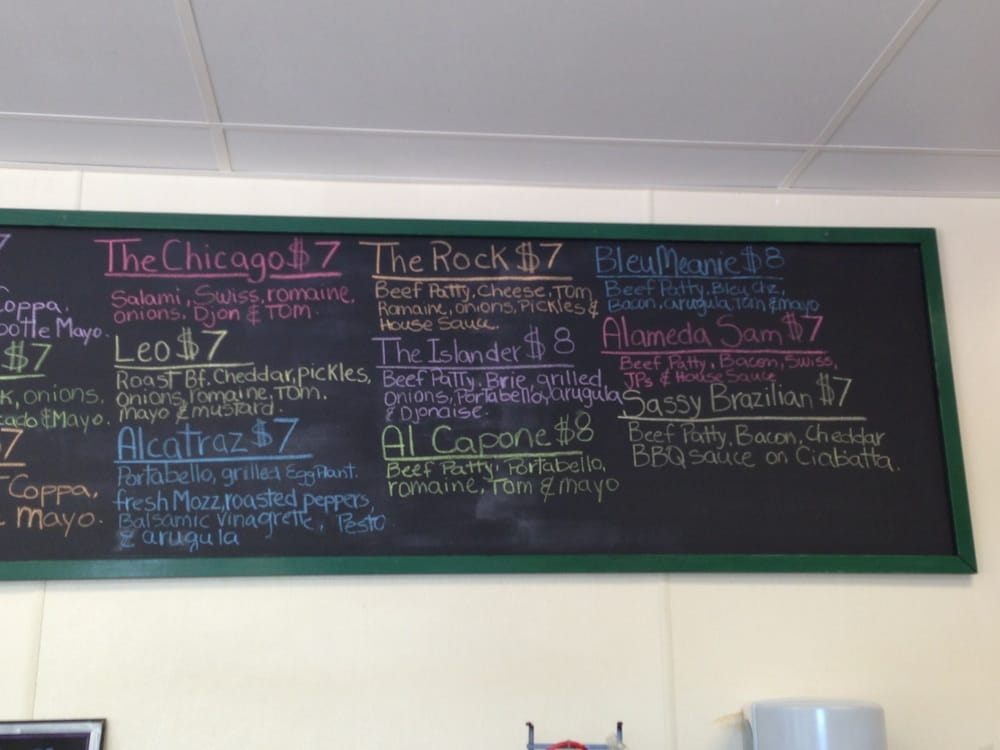 7
Coppa.
ootle Mayo.
$7
K, onions.
cado & Mayo.
$7
Coppa,
mayo.
The Chicago $7
Salami, Swiss, romaine,
onions, Djon & Tom.
Leo $7
Roast Bf. Cheddar, pickles,
Onions, romaine, Tom.
mayo & mustard.
Alcatraz $7
Portabello, grilled EggPlant.
fresh Mozz, roasted peppers,
Balsamic Vinagrette, Pesto
& arugula
The Rock $7
Beef Patty, Cheese, Tom
Romaine, onions, Pickles &
House Sauce.
The Islander $8
Beef Patty, Brie, grilled
Onions, Portabello, arugula
& Djonaise.
Al Capone $8
Beef Patty, Portabello,
romaine, Tom & mayo
Bleu Meanie $8
Beef Patty, Bleu Chz,
Bacon, arugula, Tom & mayo
Alameda Sam $7
Beef Patty, Bacon, Swiss,
JPs & House Sauce
Sassy Brazilian $7
Beef Patty, Bacon, Cheddar
BBQ sauce on Ciabatta.